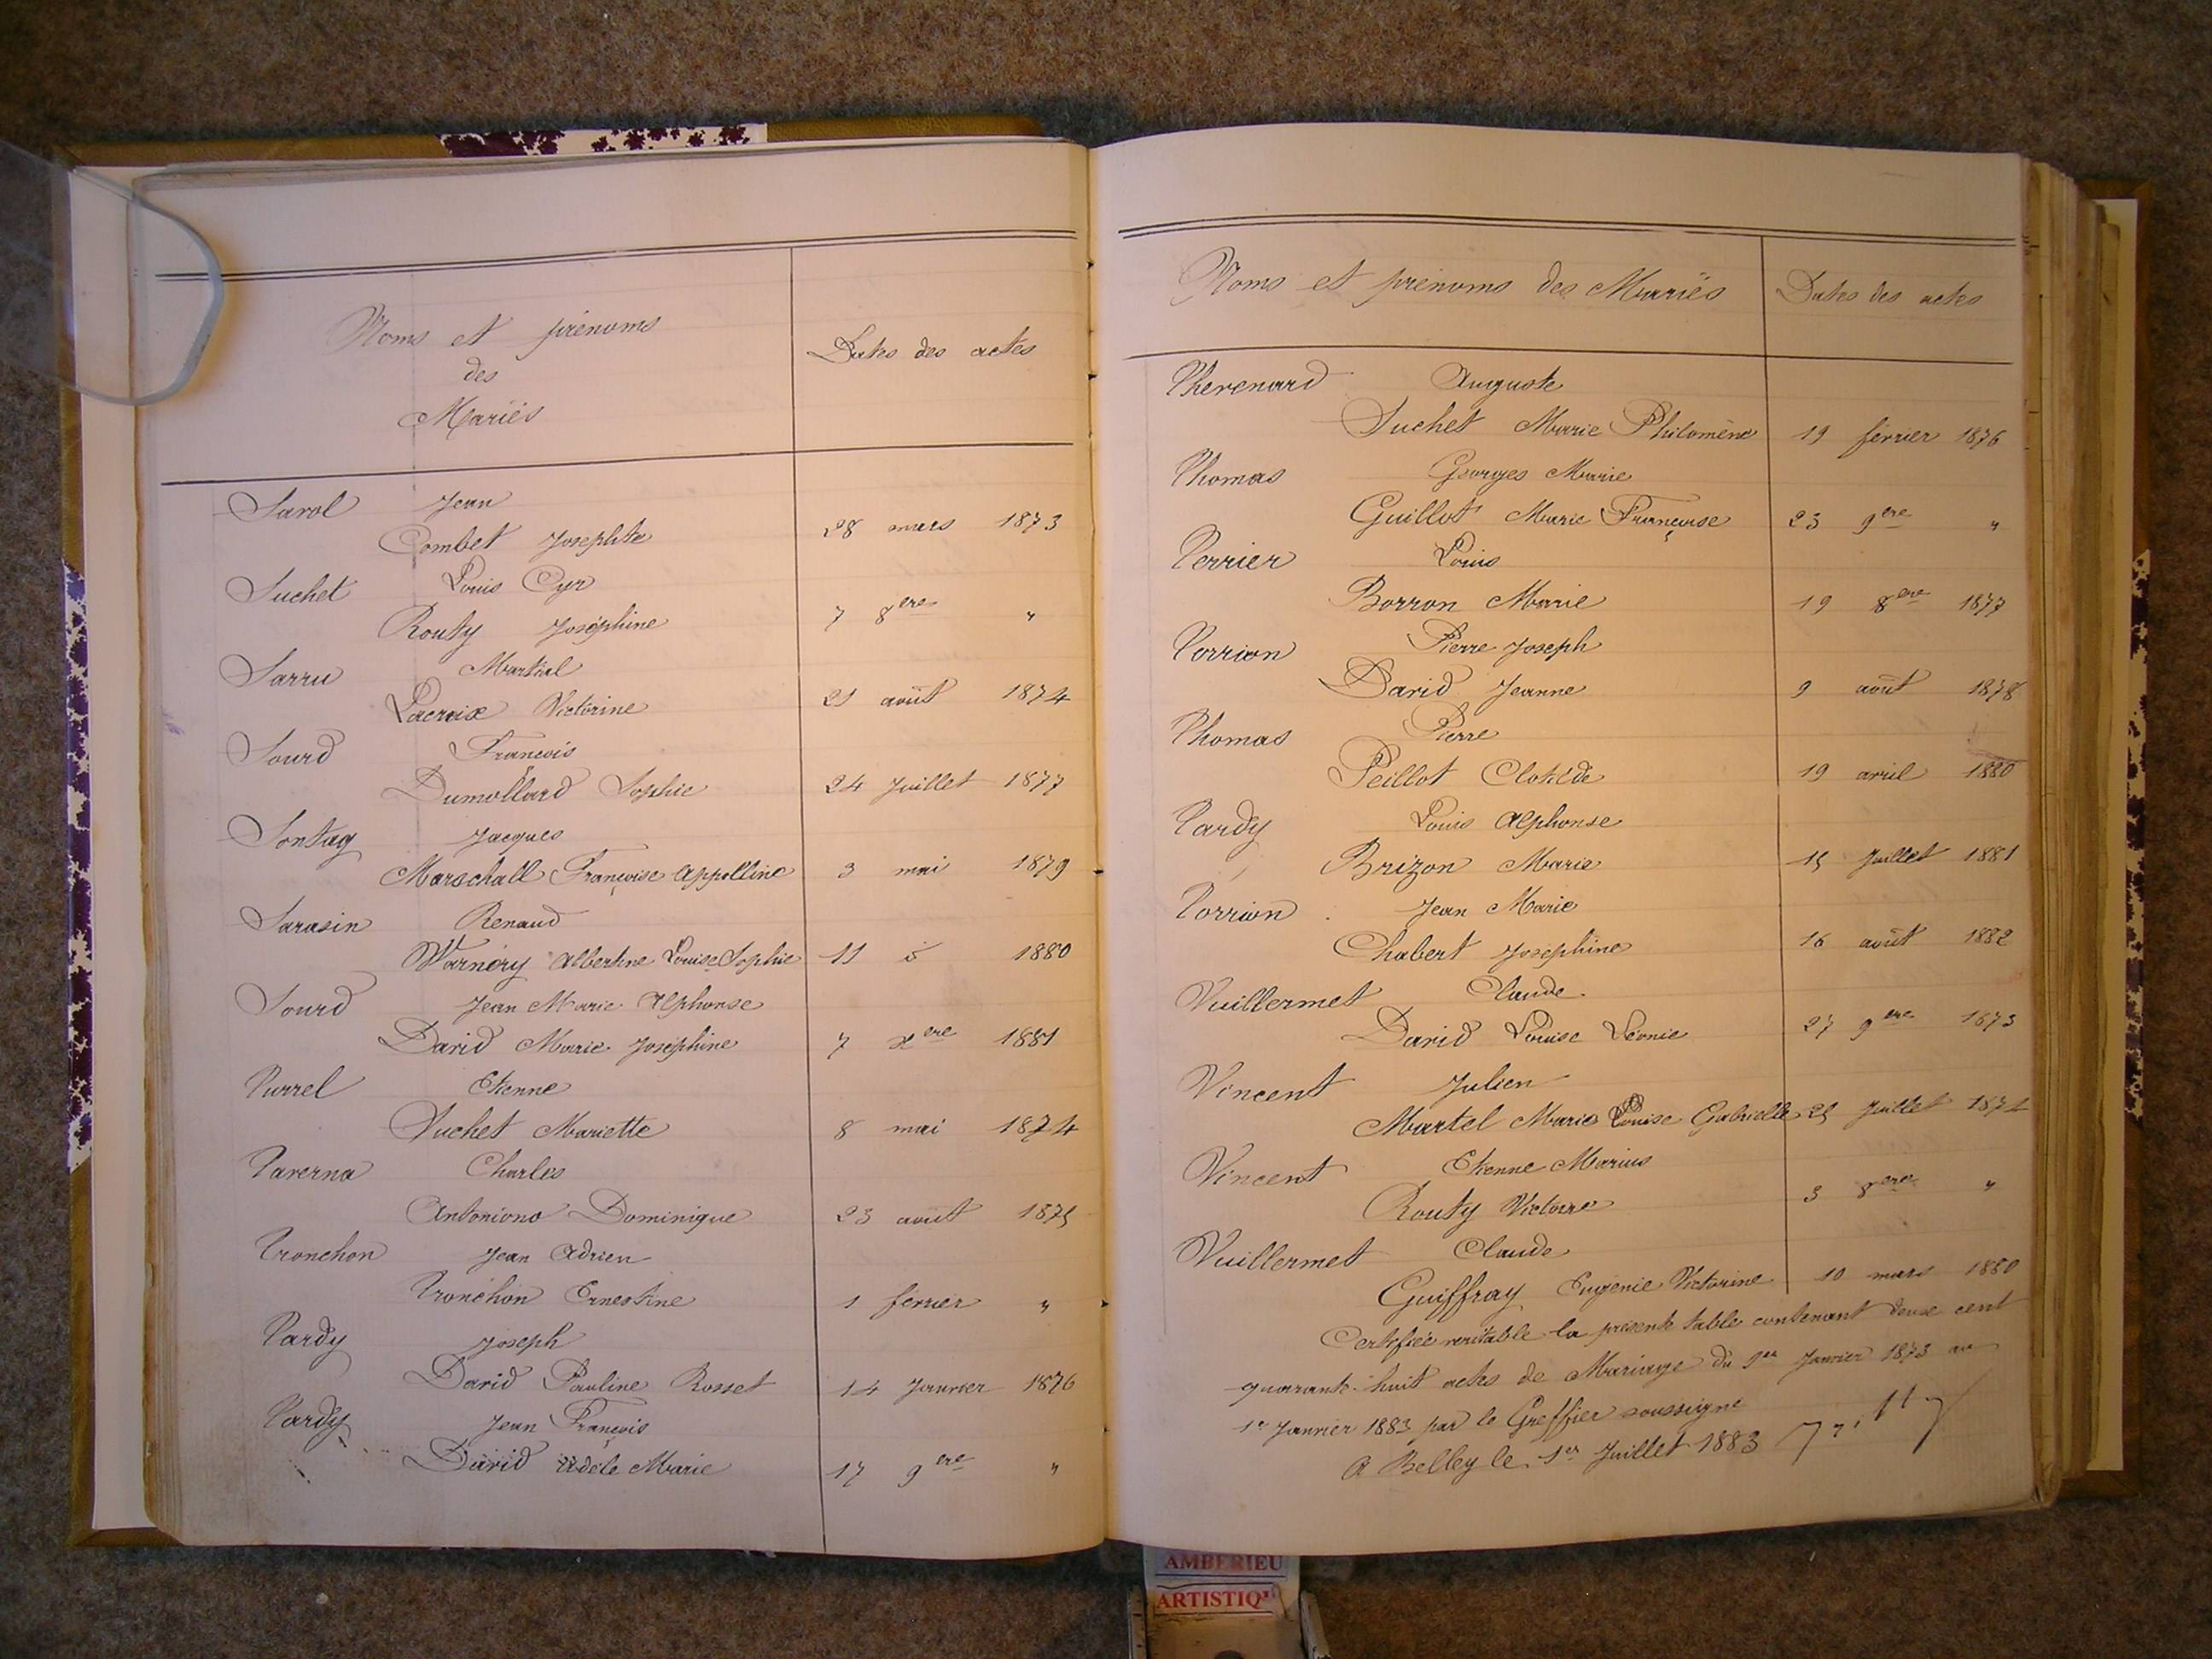 Noms et prénoms
des
Mariés
Dates des actes
Sarol Jean
Combet Josephte 28 mars 1873
Suchet Louis Cyr
Routy Joséphine 7 8ere "
Sarru Martial
Lacroix Victorine 21 août 1874
Sourd François
Dumollard Sophie 24 Juillet 1877
Sontag Jacques
Marschall Françoise Appolline 3 mai 1879
Sarasin Renaud
Warnéry Albertine Louise Sophie 11 d 1880
Sourd Jean Marie Alphonse
David Marie Joséphine 7 xere 1881
Turrel Etienne
Suchet Mariette 8 mai 1874
Taverna Charles
Antoniono Dominique 23 août 1875
Tronchon Jean Adrien
Tronchon Ernestine 1 février "
Tardy Joseph
David Pauline Rosset 14 Janvier 1876
Tardy Jean François
David Adèle Marie 17 9ere "
Noms et prénoms des Mariés Dates des actes
Thevenard Auguste
Suchet Marie Philomène 19 février 1876
Thomas Georges Marie
Guillot Marie Françoise 23 9ere "
Terrier Louis
Borron Marie 19 8ere 1877
Torrion Pierre Joseph
David Jeanne 9 août 1878
Thomas Pierre
Peillot Clotilde 19 avril 1880
Tardy Louis Alphonse
Brizon Marie 15 Juillet 1881
Torrion Jean Marie
Chabert Joséphine 16 août 1882
Vuillermet Claude
David Louise Léonie 27 9ere 1873
Vincent Julien
Martel Marie Louise Gabrielle 25 Juillet 1874
Vincent Etienne Marius
Routy Victoire 3 8ere "
Vuillermet Claude
Guiffray Eugénie Victorine 10 mars 1880
Certifiée veritable la presente table contenant deux cent
quarante-huit actes de Mariage du 1er Janvier 1873 au
1er Janvier 1883 par le Greffier soussigné
A Belley le 1er Juillet 1883
AMBERIEU
ARTISTIQ